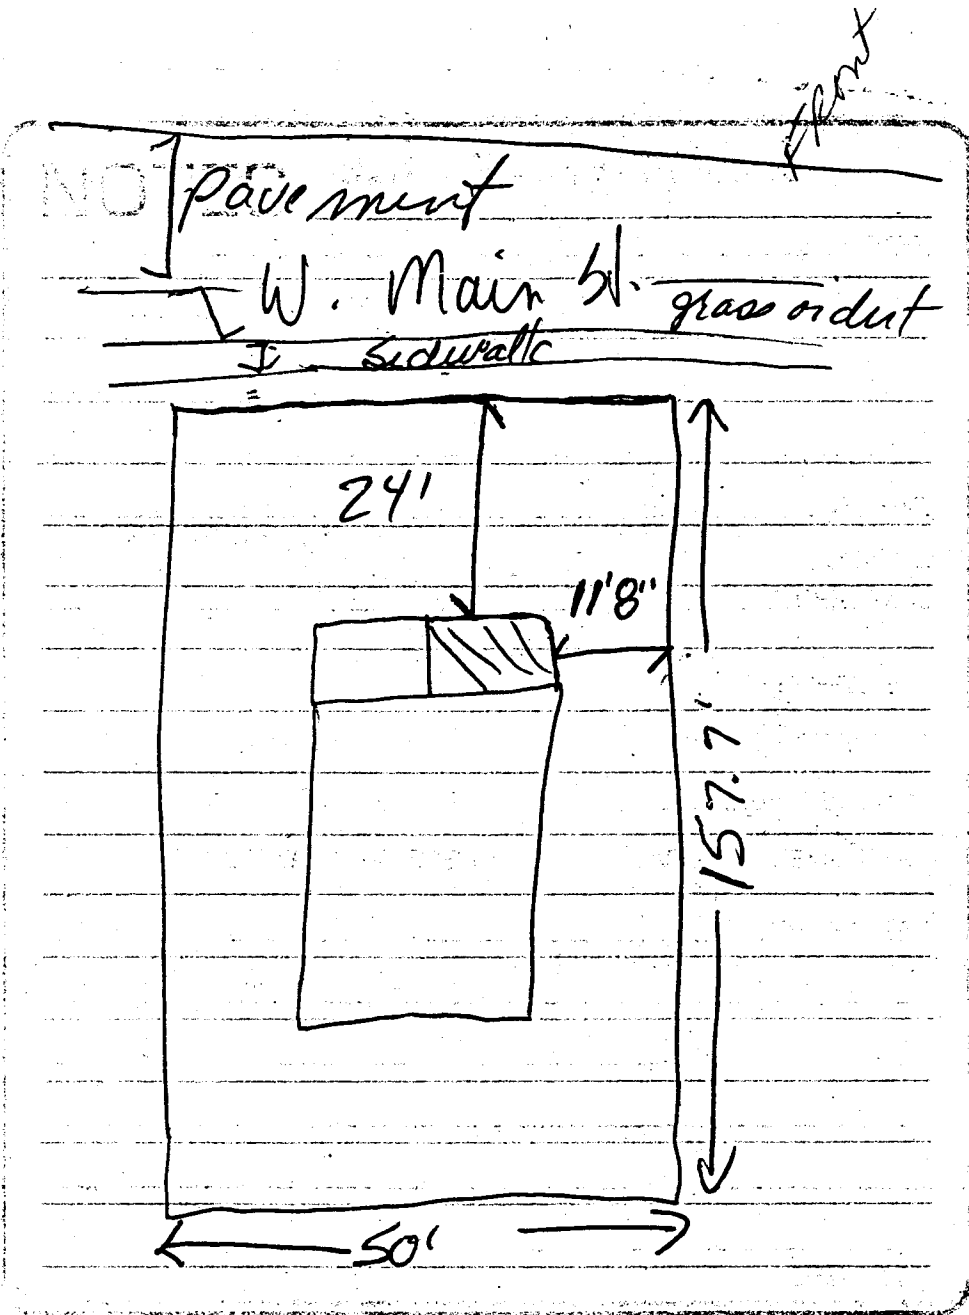 front
NOTES
Pavement
W. Main St.
grass or dirt
Sidwalk
24'
11'8"
157.7'
50'